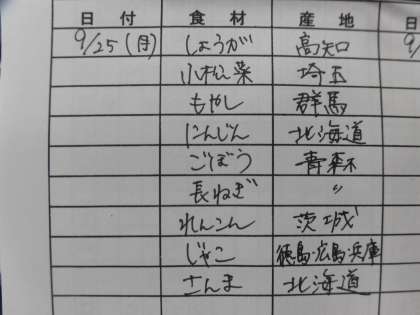 日付 食材 産地 日
9/25(月) しょうが 高知 9/
小松菜 埼玉
もやし 群馬
にんじん 北海道
ごぼう 青森
長ねぎ 〃
れんこん 茨城
じゃこ 徳島・広島・兵庫
さんま 北海道